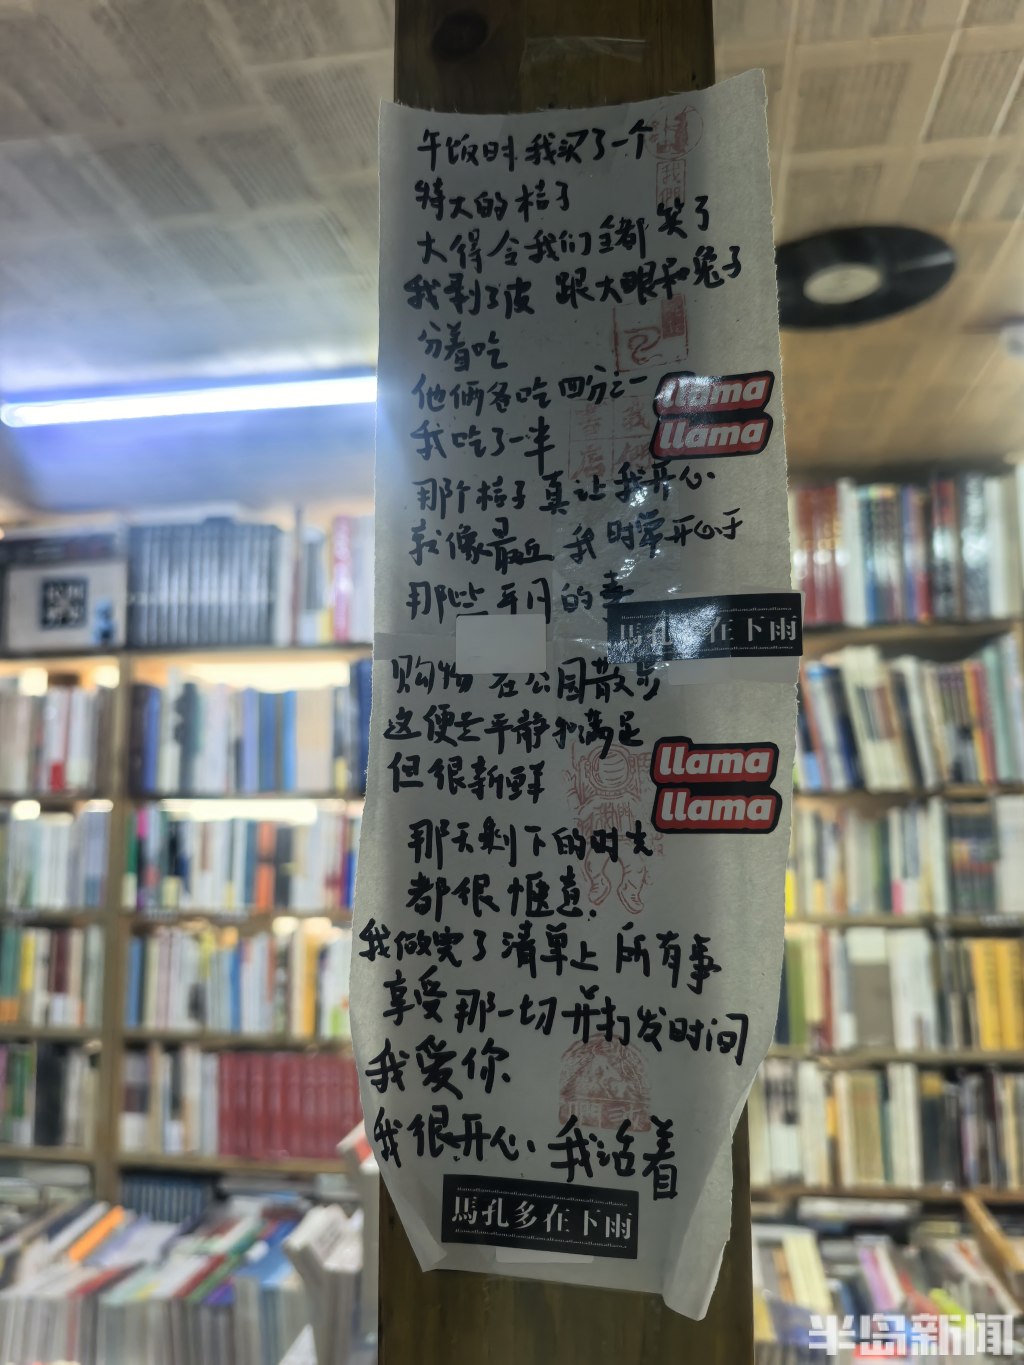 午饭时 我买了一个
特大的桔子
大得令我们全都笑了
我剥了皮 跟大眼和兔子
分着吃
他俩各吃四分之一
我吃了一半
那个桔子真让我开心
就像最近 我时常开心于
那些平凡的事
购物 在公园散步
这便是平静和满足
但很新鲜
那天剩下的时光
都很惬意.
我做完了清单上所有事
享受那一切并打发时间
我爱你
我很开心 我活着
llama
llama
馬孔多在下雨
llama
llama
馬孔多在下雨
半岛新闻